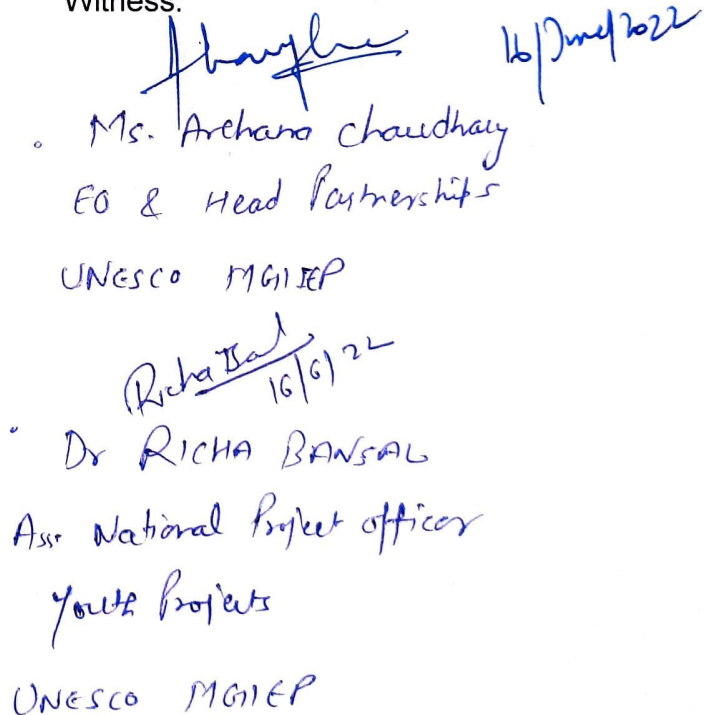 Witness:
16/June/2022
. Ms. Archana Chaudhary
EO & Head Partnerships
UNESCO MGIIEP
Richa Bal
16/6/22
. Dr RICHA BANSAL
Asst National Project officer
Youth Projects
UNESCO MGIIEP